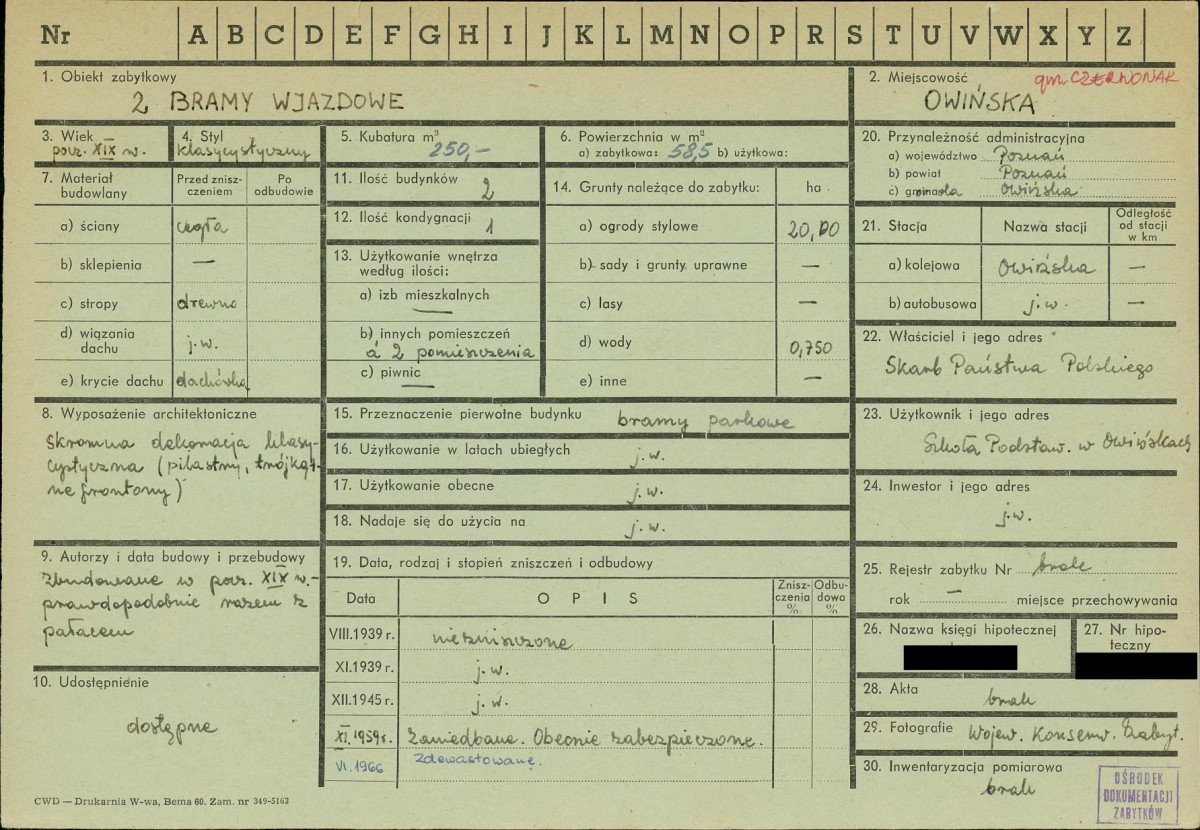 Nr A B C D E F G H I J K L M N O P R S T U V W X Y Z
1. Obiekt zabytkowy
2 BRAMY WJAZDOWE
2. Miejscowość gm. CZERWONAK
OWIŃSKA
3. Wiek
pocz. XIX w.
4. Styl
klasycystyczny
5. Kubatura m³
250,-
6. Powierzchnia w m²
a) zabytkowa: 58,5 b) użytkowa:
7. Materiał budowlany
Przed znisz-
czeniem
Po
odbudowie
a) ściany cegła
b) sklepienia —
c) stropy drewno
d) wiązania
dachu j.w.
e) krycie dachu dachówka
8. Wyposażenie architektoniczne
Skromna dekoracja klasy-
cystyczna (pilastry, trójkąt-
ne frontony)
9. Autorzy i data budowy i przebudowy
Zbudowane w pocz. XIX w. -
prawdopodobnie razem z
pałacem
10. Udostępnienie
dostępne
11. Ilość budynków 2
12. Ilość kondygnacji 1
13. Użytkowanie wnętrza
według ilości:
a) izb mieszkalnych
—
b) innych pomieszczeń
á 2 pomieszczenia
c) piwnic —
14. Grunty należące do zabytku: ha
a) ogrody stylowe 20,00
b) sady i grunty uprawne —
c) lasy —
d) wody 0,750
e) inne —
15. Przeznaczenie pierwotne budynku bramy parkowe
16. Użytkowanie w latach ubiegłych j.w.
17. Użytkowanie obecne j.w.
18. Nadaje się do użycia na j.w.
19. Data, rodzaj i stopień zniszczeń i odbudowy
Data OPIS Znisz-
czenia
% Odbu-
dowa
%
VIII.1939 r. niezniszczone
XI.1939 r. j.w.
XII.1945 r. j.w.
XI.1959r. Zaniedbane. Obecnie zabezpieczone.
VI.1966 Zdewastowane.
20. Przynależność administracyjna
a) województwo Poznań
b) powiat Poznań
c) gmina Owińska
21. Stacja Nazwa stacji Odległość
od stacji
w km
a) kolejowa Owińska —
b) autobusowa j.w. —
22. Właściciel i jego adres
Skarb Państwa Polskiego
23. Użytkownik i jego adres
Szkoła Podstaw. w Owińskach
24. Inwestor i jego adres
j.w.
25. Rejestr zabytku Nr brak
rok — miejsce przechowywania
26. Nazwa księgi hipotecznej
27. Nr hipo-
teczny
28. Akta
brak
29. Fotografie Wojew. Konserw. Zabyt.
30. Inwentaryzacja pomiarowa
brak
CWD — Drukarnia W-wa, Bema 60. Zam. nr 349-5162
OŚRODEK
DOKUMENTACJI
ZABYTKÓW